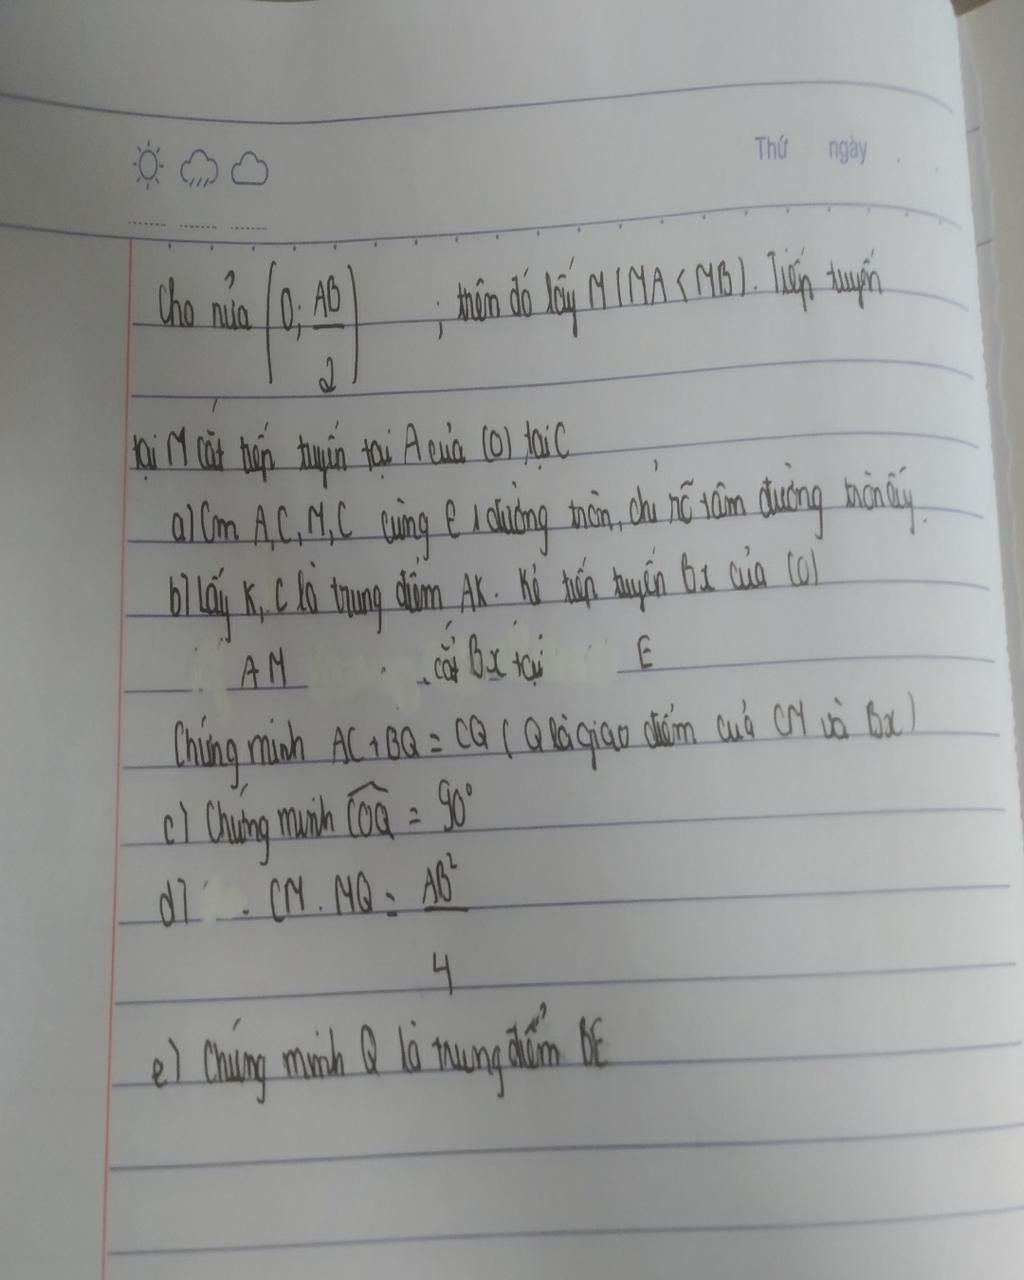 Thứ ngày
Cho nửa (O; AB/2) ; trên đó lấy M (MA < MB). Tiếp tuyến
tại M cắt tiếp tuyến tại A của (O) tại C
a) Cm A, C, M, C cùng € 1 đường tròn, chỉ rõ tâm đường tròn ấy.
b) lấy K, C là trung điểm AK. Kẻ tiếp tuyến Bx của (O)
AM cắt Bx tại E
Chứng minh AC + BQ = CQ (Q là giao điểm cuả CM và Bx)
c) Chứng minh COQ = 90°
d) CM . MQ = AB²/4
e) Chứng minh Q là trung điểm BE